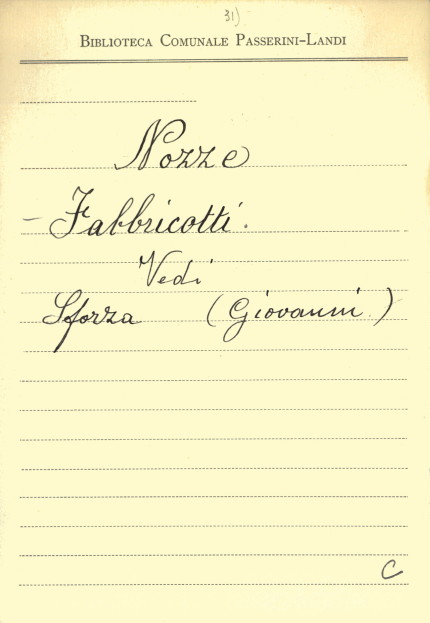 31)
BIBLIOTECA COMUNALE PASSERINI-LANDI
Nozze
- Fabbricotti.
Vedi
Sforza (Giovanni)
C